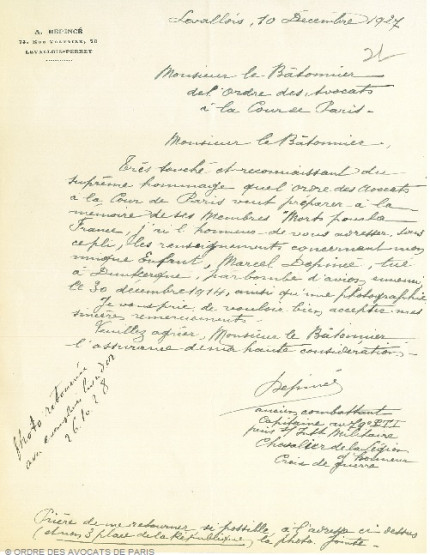 Levallois, 10 Décembre 1927
A. DEPINCÉ
LEVALLOIS-PERRET
Monsieur le Bâtonnier
de l'Ordre des Avocats
à la Cour de Paris -
Monsieur le Bâtonnier,
Très touché et reconnaissant du
suprême hommage que l'ordre des avocats
à la Cour de Paris veut préparer à la
mémoire de ses Membres "Morts pour la
France, j'ai l'honneur de vous adresser, sous
ce pli, les renseignements concernant mon
unique Enfant, Marcel Depincé, tué
à Dunkerque, par bombe d'avion ennemi
le 30 décembre 1914, ainsi qu'une photographie
Je vous prie de vouloir bien accepter mes
sincères remerciements.
Veuillez agréer, Monsieur le Bâtonnier
l'assurance de ma haute considération
Depincé
ancien combattant
Capitaine au
Militaire
Chevalier de la Légion
d'Honneur
Croix de guerre
photo retournée
26.10.28
Prière de me retourner, si possible, à l'adresse ci-dessus
(et non 3 place de la République), la photo jointe
© ORDRE DES AVOCATS DE PARIS